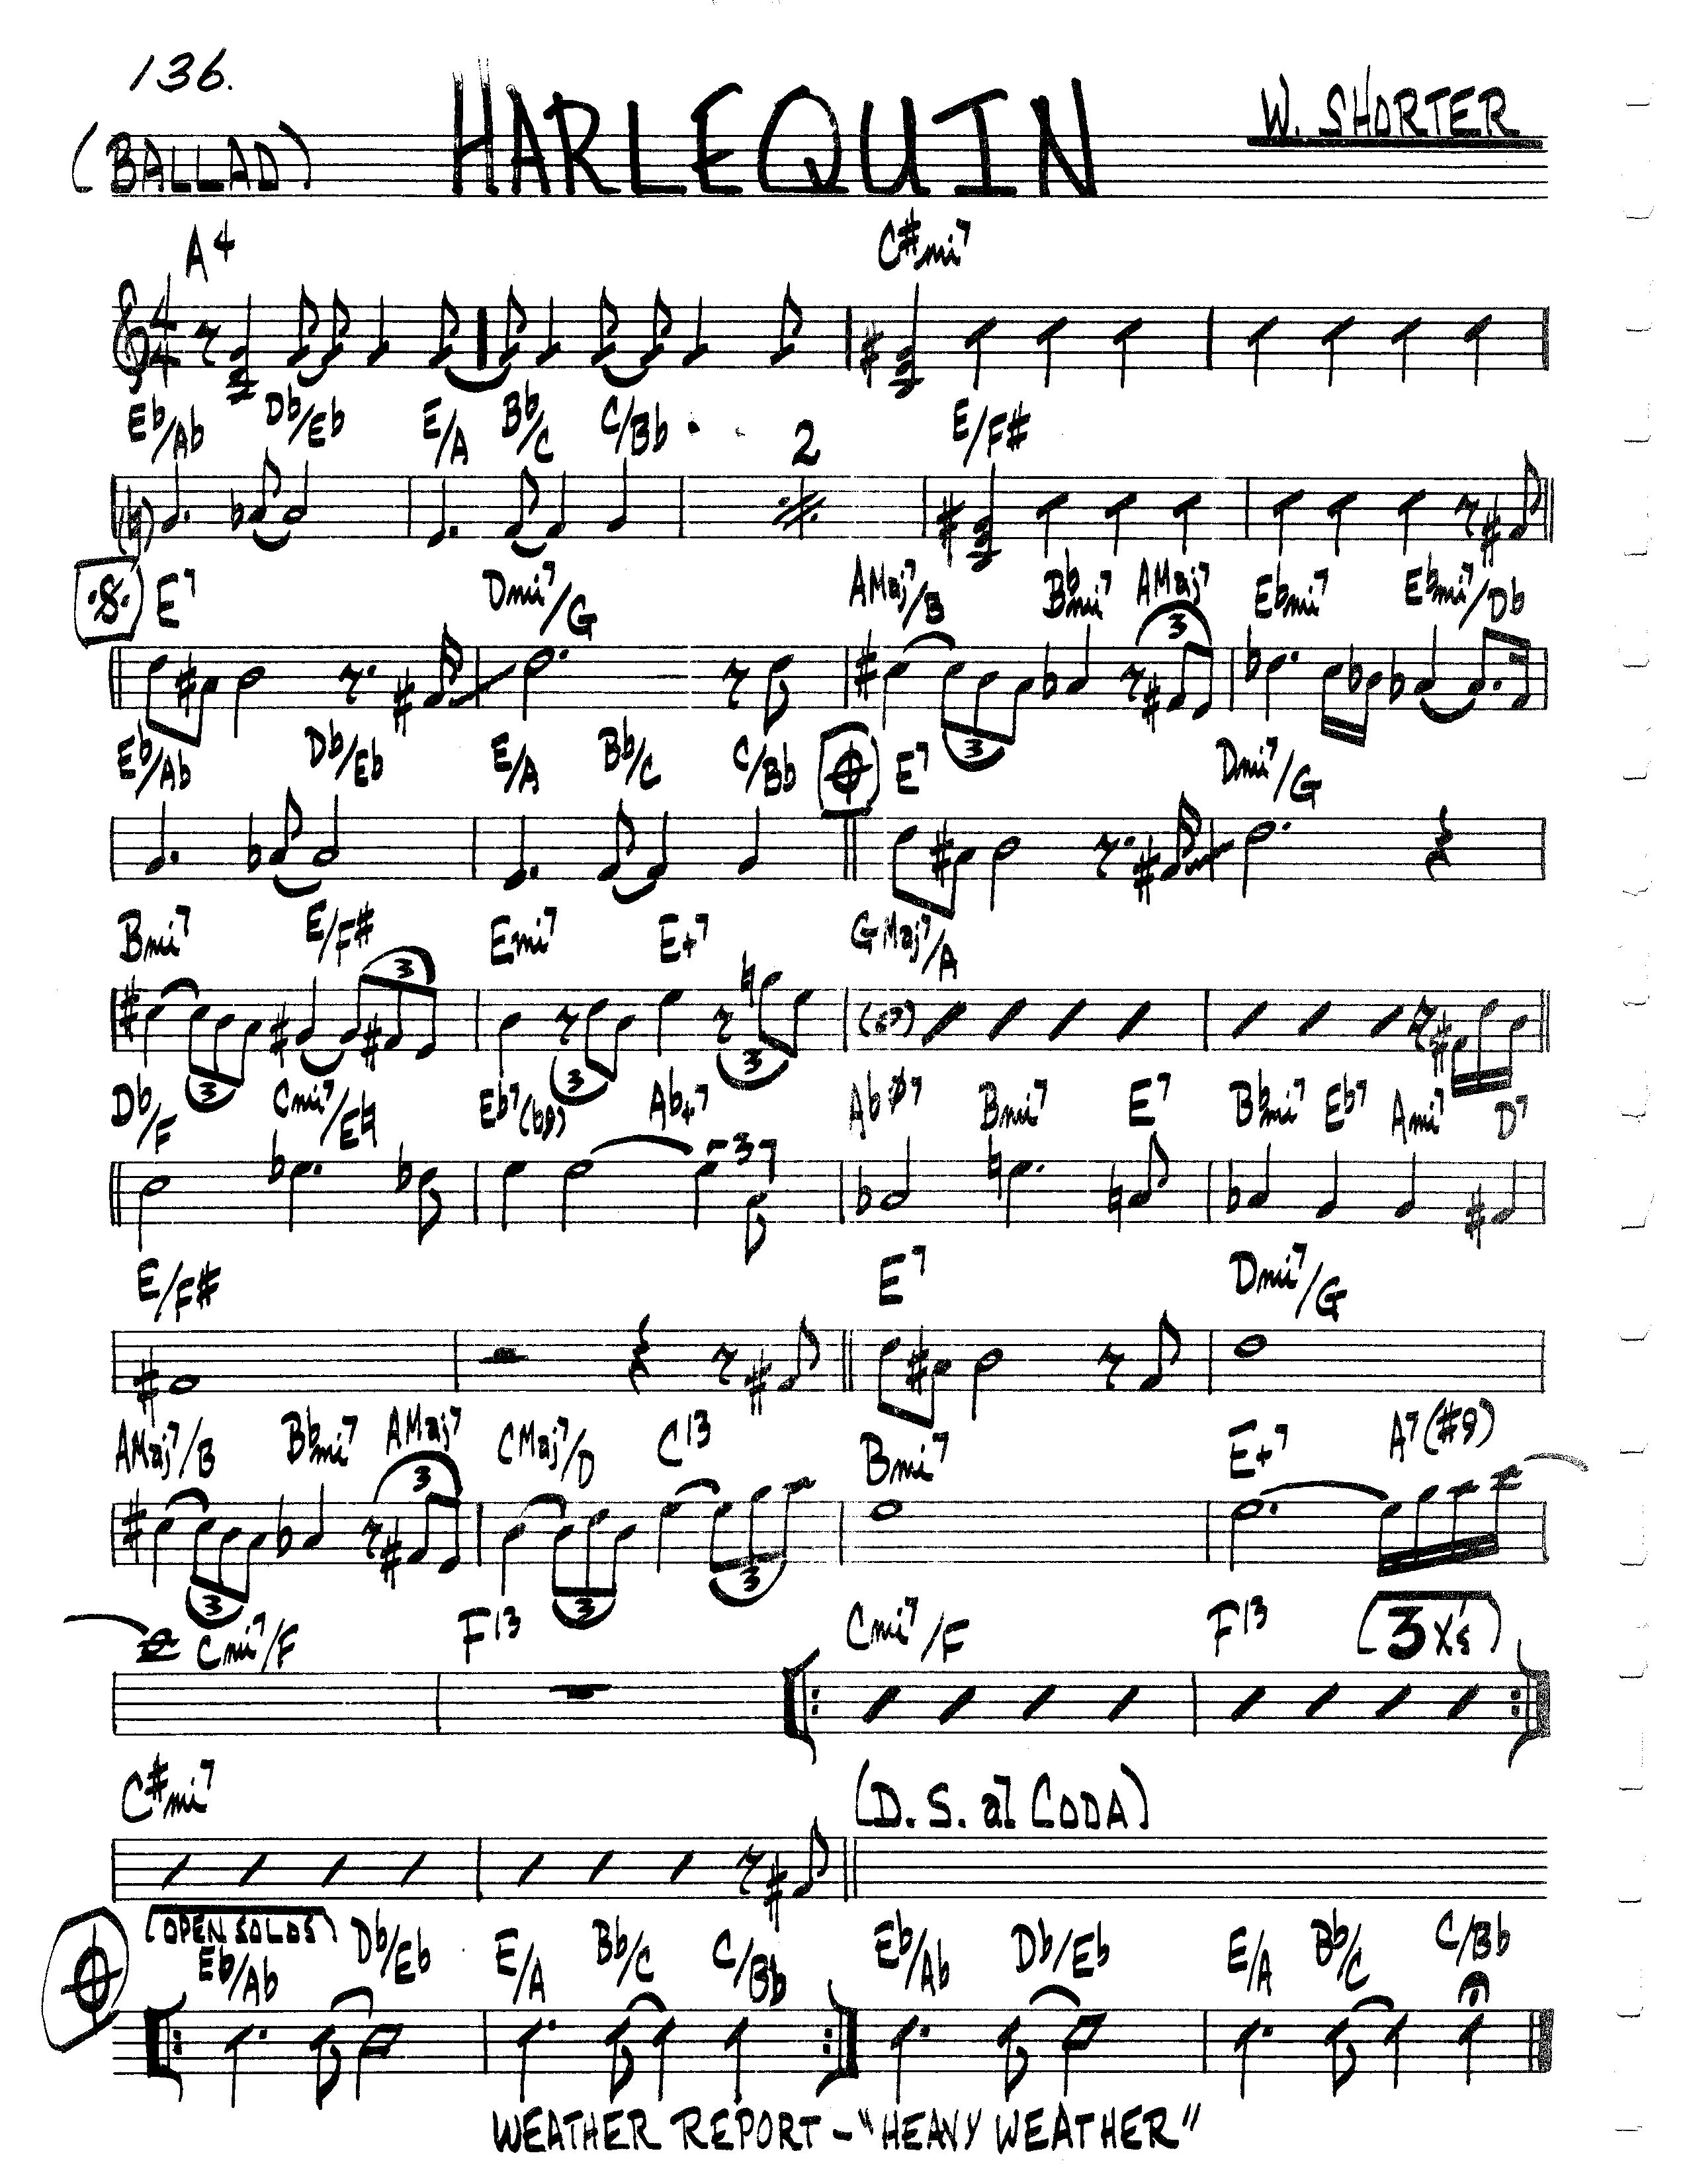 136.
HARLEQUIN
W. SHORTER
(BALLAD)
A4 C#mi7
4/4
Eb/Ab Db/Eb E/A Bb/C C/Bb 2 E/F#
E7 Dmi7/G AMaj7/B Bbmi7 AMaj7 Ebmi7 Ebmi7/Db
3 3
Eb/Ab Db/Eb E/A Bb/C C/Bb E7 Dmi7/G
Bmi7 E/F# Emi7 E+7 GMaj7/A
3 3 3 3
Db/F Cmi7/E♮ Eb7(b9) Ab+7 AbØ7 Bmi7 E7 Bbmi7 Eb7 Ami7 D7
3
E/F# E7 Dmi7/G
AMaj7/B Bbmi7 AMaj7 CMaj7/D C13 Bmi7 E+7 A7(#9)
3 3 3 3
Cmi7/F F13 Cmi7/F F13 (3 x's)
C#mi7 (D.S. al CODA)
(OPEN SOLOS)
Eb/Ab Db/Eb E/A Bb/C C/Bb Eb/Ab Db/Eb E/A Bb/C C/Bb
WEATHER REPORT - "HEAVY WEATHER"